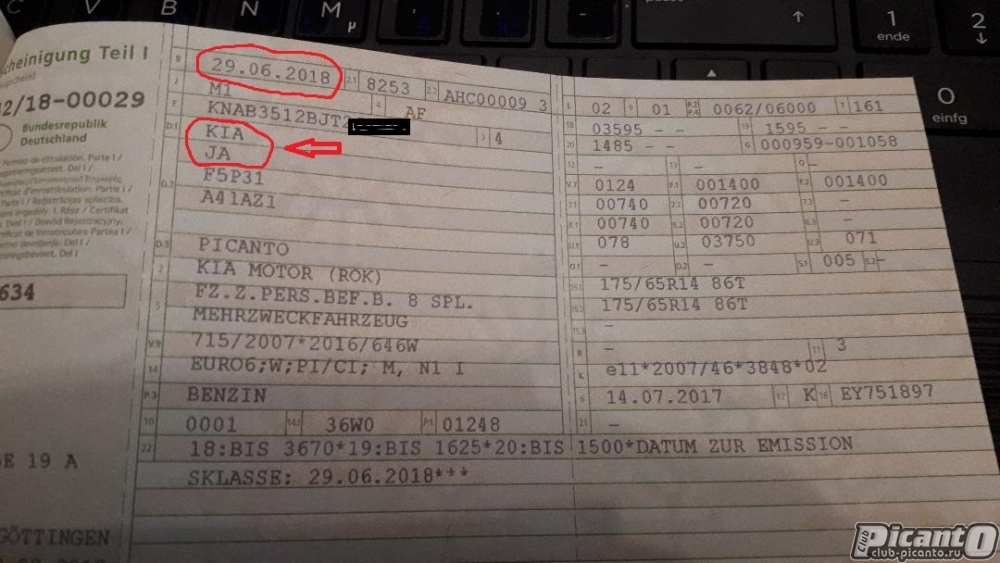 C V B N M µ
1 ende
2
0 einfg
cheinigung Teil I
2/18-00029
Bundesrepublik
Deutschland
634
E 19 A
GÖTTINGEN
B 29.06.2018 2.1 8253 2.2 AHC00009 3
J M1 4 AF
E KNAB3512BJT
D.1 KIA 3 4
JA
D.2 F5P31
A41AZ1
D.3 PICANTO
2 KIA MOTOR (ROK)
5 FZ.Z.PERS.BEF.B. 8 SPL.
MEHRZWECKFAHRZEUG
V.9 715/2007*2016/646W
14 EURO6;W;PI/CI; M, N1 I
P.3 BENZIN
10 0001 14.1 36W0 P.1 01248
22 18:BIS 3670*19:BIS 1625*20:BIS 1500*DATUM ZUR EMISSION
SKLASSE: 29.06.2018***
L 02 9 01 P.2 P.4 0062/06000 T 161
18 03595 - - 19 1595 - -
20 1485 - - G 000959-001058
12 - 13 - Q -
V.7 0124 F.1 001400 F.2 001400
7.1 00740 7.2 00720 7.3 -
8.1 00740 8.2 00720 8.3 -
U.1 078 U.2 03750 U.3 071
O.1 - O.2 - S.1 005 S.2 -
15.1 175/65R14 86T
15.2 175/65R14 86T
15.3 -
R - 11 3
K e11*2007/46*3848*02
6 14.07.2017 17 K 16 EY751897
21 -
Club PicantO
club-picanto.ru